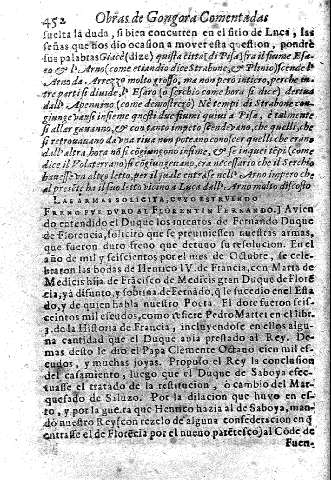 452 Obras de Gongora Comentadas
suelta la duda, si bien concurren en el sitio de Luca, las
señas que nos dio ocasion a mover esta question, pondrè
sus palabras Giace (dize) questa città (di Pisa) fra il fiume Esa-
ro & l' Arno (come etiandio dice Strabone, & Plinio) scende l'
Arno da Arezzo molto grosso, ma non però intiero, perche in
tre parti si diuide, l' Esaro (o serchio come hora si dice) deriua
dall' Apennino (come demostreró) Ne tempi di Strabone con
giunge vansi insieme questi due fiumi quiui a Pisa, è talmente
si allargauano, & con tanto impeto scendeuano, che quelli, che
si retrouauano da vna riua non poteano conoscer quelli che erano
dall' altra hora nõ si cõgiungono insieme, & se in quei tẽpi (come
dice il Volaterrano) si cõgiungeuan, era necessario che il Serchio
hauesse vn altro letto, per il quale entrasse nell' Arno impero che
al presẽte ha il suo letto vicino a Luca dall' Arno molto discosto
LAS ARMAS SOLICITA, CUYO ESTRUENDO
FRENO FUE DURO AL FLORENTIN FERNANDO.] Avien
do entendido el Duque los intentos de Fernando Duque
de Florencia, solicitò que se previniessen nuestras armas,
que fueron duro freno que detuvo su resolucion. En el
año de mil y seiscientos por el mes de Octubre, se cele-
braron las bodas de Henrico IV. de Francia, con Maria de
Medicis hija de Frãcisco de Medicis gran Duque de Florẽ
cia, ya difunto, y sobrina de Fernãdo, q̃ le sucedio en el Esta
do, y de quien habla nuestro Poeta. El dote fueron seis-
cientos mil escudos, como refiere Pedro Mattei en el libr.
3. de la Historia de Francia, incluyendose en ellos algu-
na cantidad que el Duque avia prestado al Rey. De
mas desto le dio el Papa Clemente Octavo cien mil es-
cudos, y muchas joyas. Propuso el Rey la conclusion
del casamiento, luego que el Duque de Saboya efec-
tuasse el tratado de la restitucion, ò cambio del Mar-
quesado de Saluzo. Por la dilacion que huvo en es-
to, y por la guerra que Henrico hazia al de Saboya, man-
dó nuestro Rey (con rezelo de alguna confederacion en q̃
entrasse el de Florẽcia por el nuevo parẽtesco) al Cõde de
Fuen-